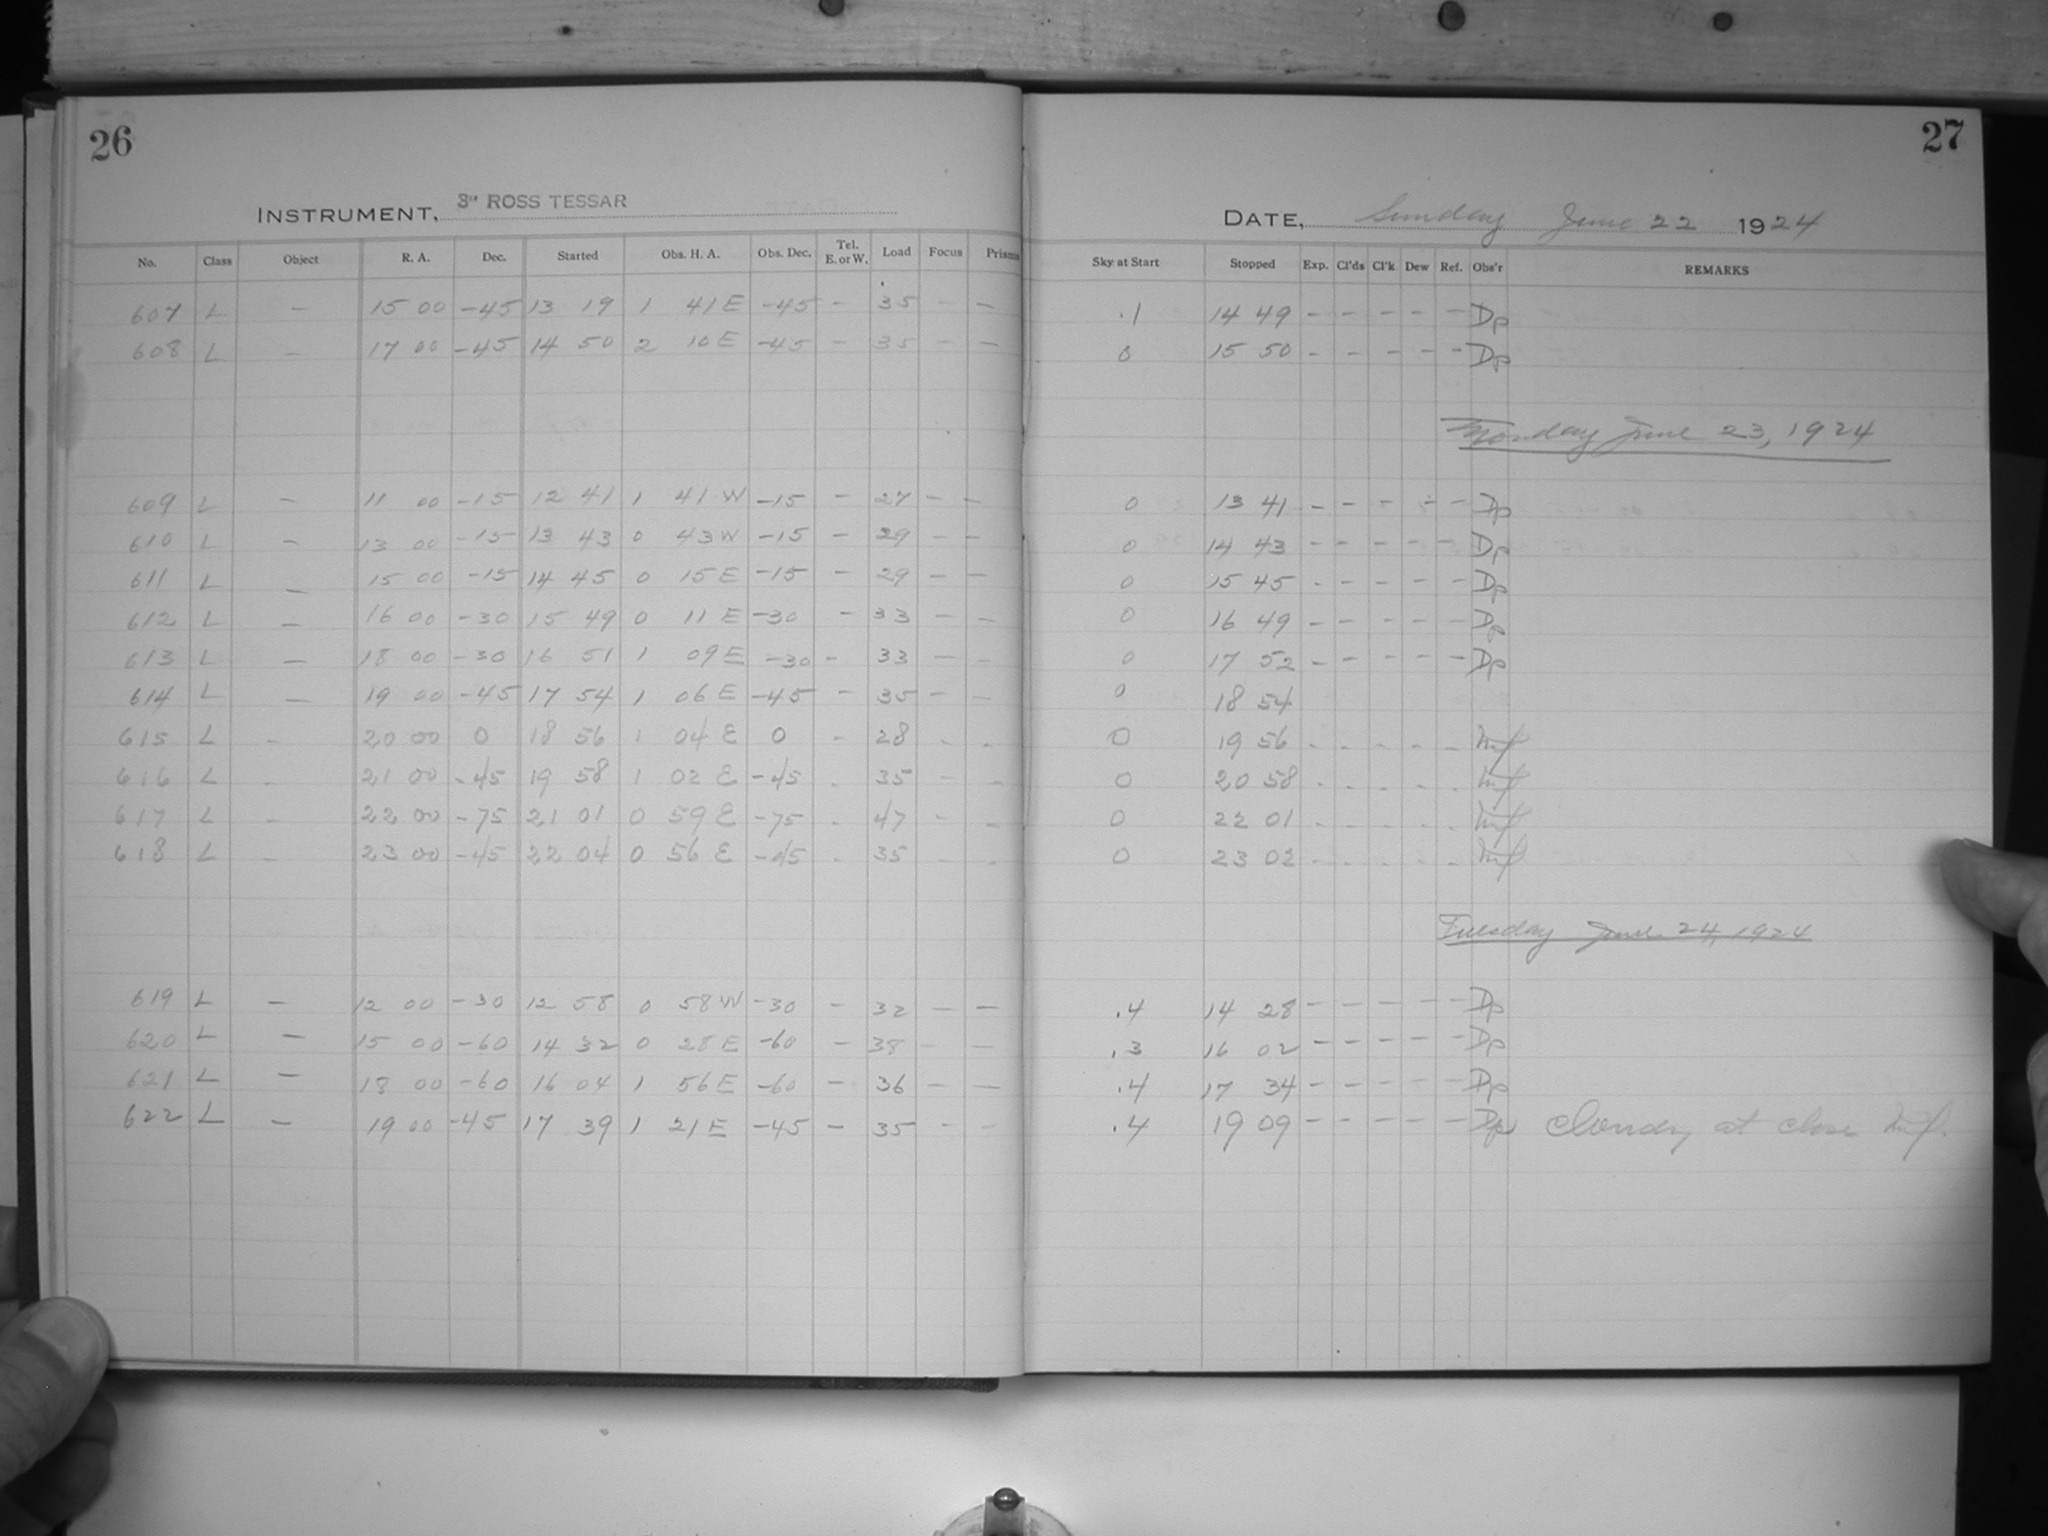 26
27
INSTRUMENT, 3" ROSS TESSAR
DATE, Sunday June 22 1924
No. Class Object R. A. Dec. Started Obs. H. A. Obs. Dec. Tel. E. or W. Load Focus Prisms Sky at Start Stopped Exp. Cl'ds Cl'k Dew Ref. Obs'r REMARKS
607 L — 15 00 -45 13 19 1 41 E -45 - 35 - — .1 14 49 - - - - - Dp
608 L — 17 00 -45 14 50 2 10 E -45 - 35 - — 0 15 50 - - - - - Dp
Monday June 23, 1924
609 L — 11 00 -15 12 41 1 41 W -15 - 27 - — 0 13 41 - - - - - Dp
610 L — 13 00 -15 13 43 0 43 W -15 - 29 - — 0 14 43 - - - - - Dp
611 L — 15 00 -15 14 45 0 15 E -15 - 29 - — 0 15 45 - - - - - Dp
612 L — 16 00 -30 15 49 0 11 E -30 - 33 - - 0 16 49 - - - - - Dp
613 L — 18 00 -30 16 51 1 09 E -30 - 33 - - 0 17 52 - - - - - Dp
614 L — 19 00 -45 17 54 1 06 E -45 - 35 - - 0 18 54
615 L - 20 00 0 18 56 1 04 E 0 - 28 - - 0 19 56 - - - - -
616 L - 21 00 -45 19 58 1 02 E -45 - 35 - - 0 20 58 - - - - -
617 L - 22 00 -75 21 01 0 59 E -75 - 47 - - 0 22 01 - - - - -
618 L - 23 00 -45 22 04 0 56 E -45 - 35 - - 0 23 02 - - - - -
Tuesday June 24, 1924
619 L — 12 00 -30 12 58 0 58 W -30 - 32 - — .4 14 28 - - - - - Dp
620 L — 15 00 -60 14 32 0 28 E -60 - 38 - — .3 16 02 - - - - - Dp
621 L — 18 00 -60 16 04 1 56 E -60 - 36 - — .4 17 34 - - - - - Dp
622 L — 19 00 -45 17 39 1 21 E -45 - 35 - - .4 19 09 - - - - - Dp Cloudy at close